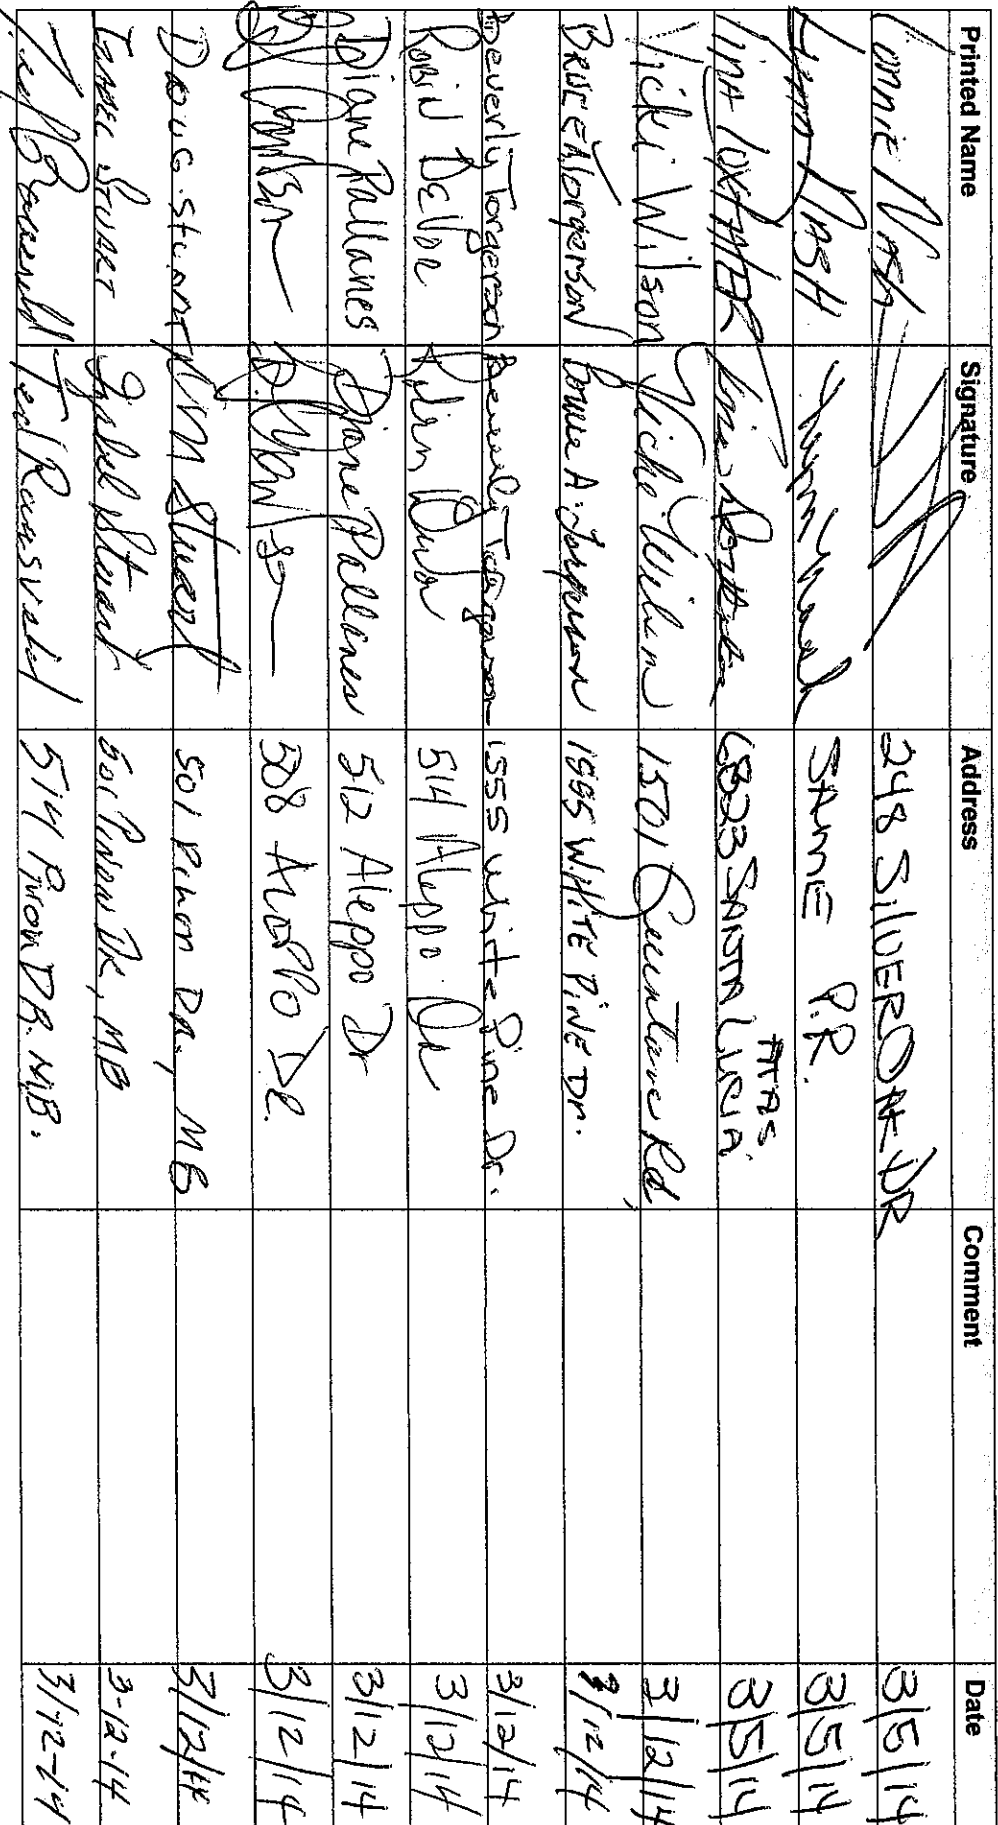 Printed Name Signature Address Comment Date
Nash 248 SILVEROAK DR 3/5/14
LYNN NASH SAME P.R. 3/5/14
6823 SANTA LUCIA ATAS 3/5/14
Vicki Wilson Vicki Wilson 1501 Rd 3/12/14
BRUCE A Torgerson Bruce A. Torgerson 1555 WHITE PINE Dr. 3/12/14
Beverly Torgerson Beverly Torgerson 1555 White Pine Dr. 3/12/14
ROBIN Robin 514 Aleppo Dr 3/12/14
Diane Pallanes Diane Pallanes 512 Aleppo Dr 3/12/14
508 Dr. 3/12/14
Doug Stuart Stuart 501 Pinon DR, MB 3/12/14
ISABEL STUART Isabel Stuart 501 Pinon DR, MB 3-12-14
Ted Ted 514 Pinon DR. MB. 3/12-14